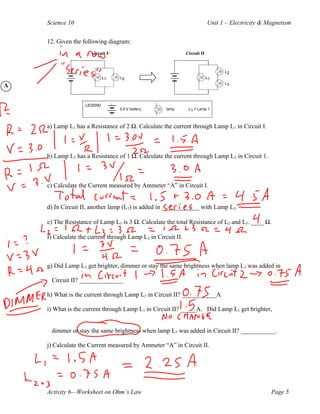 Science 10 Unit 1 – Electricity & Magnetism
12. Given the following diagram:
Circuit I Circuit II
in a row
"series"
L1 L2
L1
L2
L3
A
LEGEND
3.0 V battery lamp L1 = Lamp 1
a) Lamp L1 has a Resistance of 2 Ω. Calculate the current through Lamp L1 in Circuit I.
R = 2Ω
V = 3.0
I = V/R I = 3.0V/2Ω = 1.5 A
b) Lamp L2 has a Resistance of 1 Ω. Calculate the current through Lamp L2 in Circuit 1.
R = 1Ω
V = 3.V
I = 3V/1Ω = 3.0 A
c) Calculate the Current measured by Ammeter “A” in Circuit I.
Total current = 1.5 + 3.0 A = 4.5A
d) In Circuit II, another lamp (L3) is added in series with Lamp L2.
e) The Resistance of Lamp L3 is 3 Ω. Calculate the total Resistance of L2 and L3. 4 Ω.
L2 = 1Ω + L3 = 3Ω = 1Ω + 3Ω = 4Ω
f) Calculate the current through Lamp L2 in Circuit II.
I = ?
V = 3V
R = 4Ω
I = 3V/4Ω = 0.75 A
g) Did Lamp L2 get brighter, dimmer or stay the same brightness when lamp L3 was added in
Circuit II?
in Circuit 1 → 1.5A in Circuit 2 → 0.75 A
DIMMER
h) What is the current through Lamp L3 in Circuit II? 0.75 A
i) What is the current through Lamp L1 in Circuit II? 1.5 A. Did Lamp L1 get brighter,
NO CHANGE
dimmer or stay the same brightness when lamp L3 was added in Circuit II? ____________.
j) Calculate the Current measured by Ammeter “A” in Circuit II.
L1 = 1.5A
L2+3 = 0.75A
= 2.25 A
Activity 6—Worksheet on Ohm’s Law Page 5